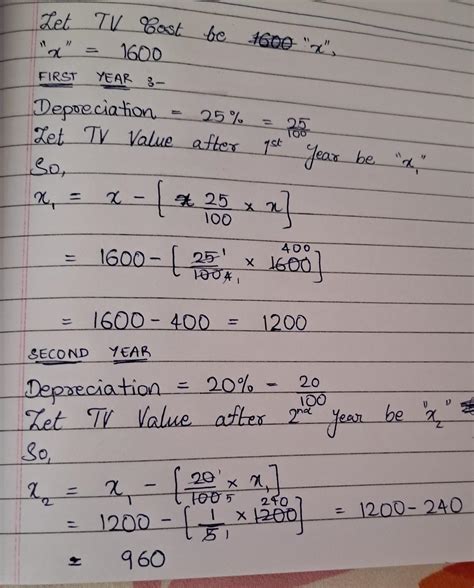 Let TV Cost be 1600 "x",
"x" = 1600
FIRST YEAR :-
Depreciation = 25% = 25/100
Let TV Value after 1st Year be "x₁"
So,
x₁ = x - [25/100 × x]
= 1600 - [25 1/100 4 1 × 1600 400]
= 1600 - 400 = 1200
SECOND YEAR
Depreciation = 20% - 20/100
Let TV Value after 2nd year be "x₂"
So,
x₂ = x₁ - [20 1/100 5 × x₁]
= 1200 - [1/5 1 × 1200 240] = 1200 - 240
= 960